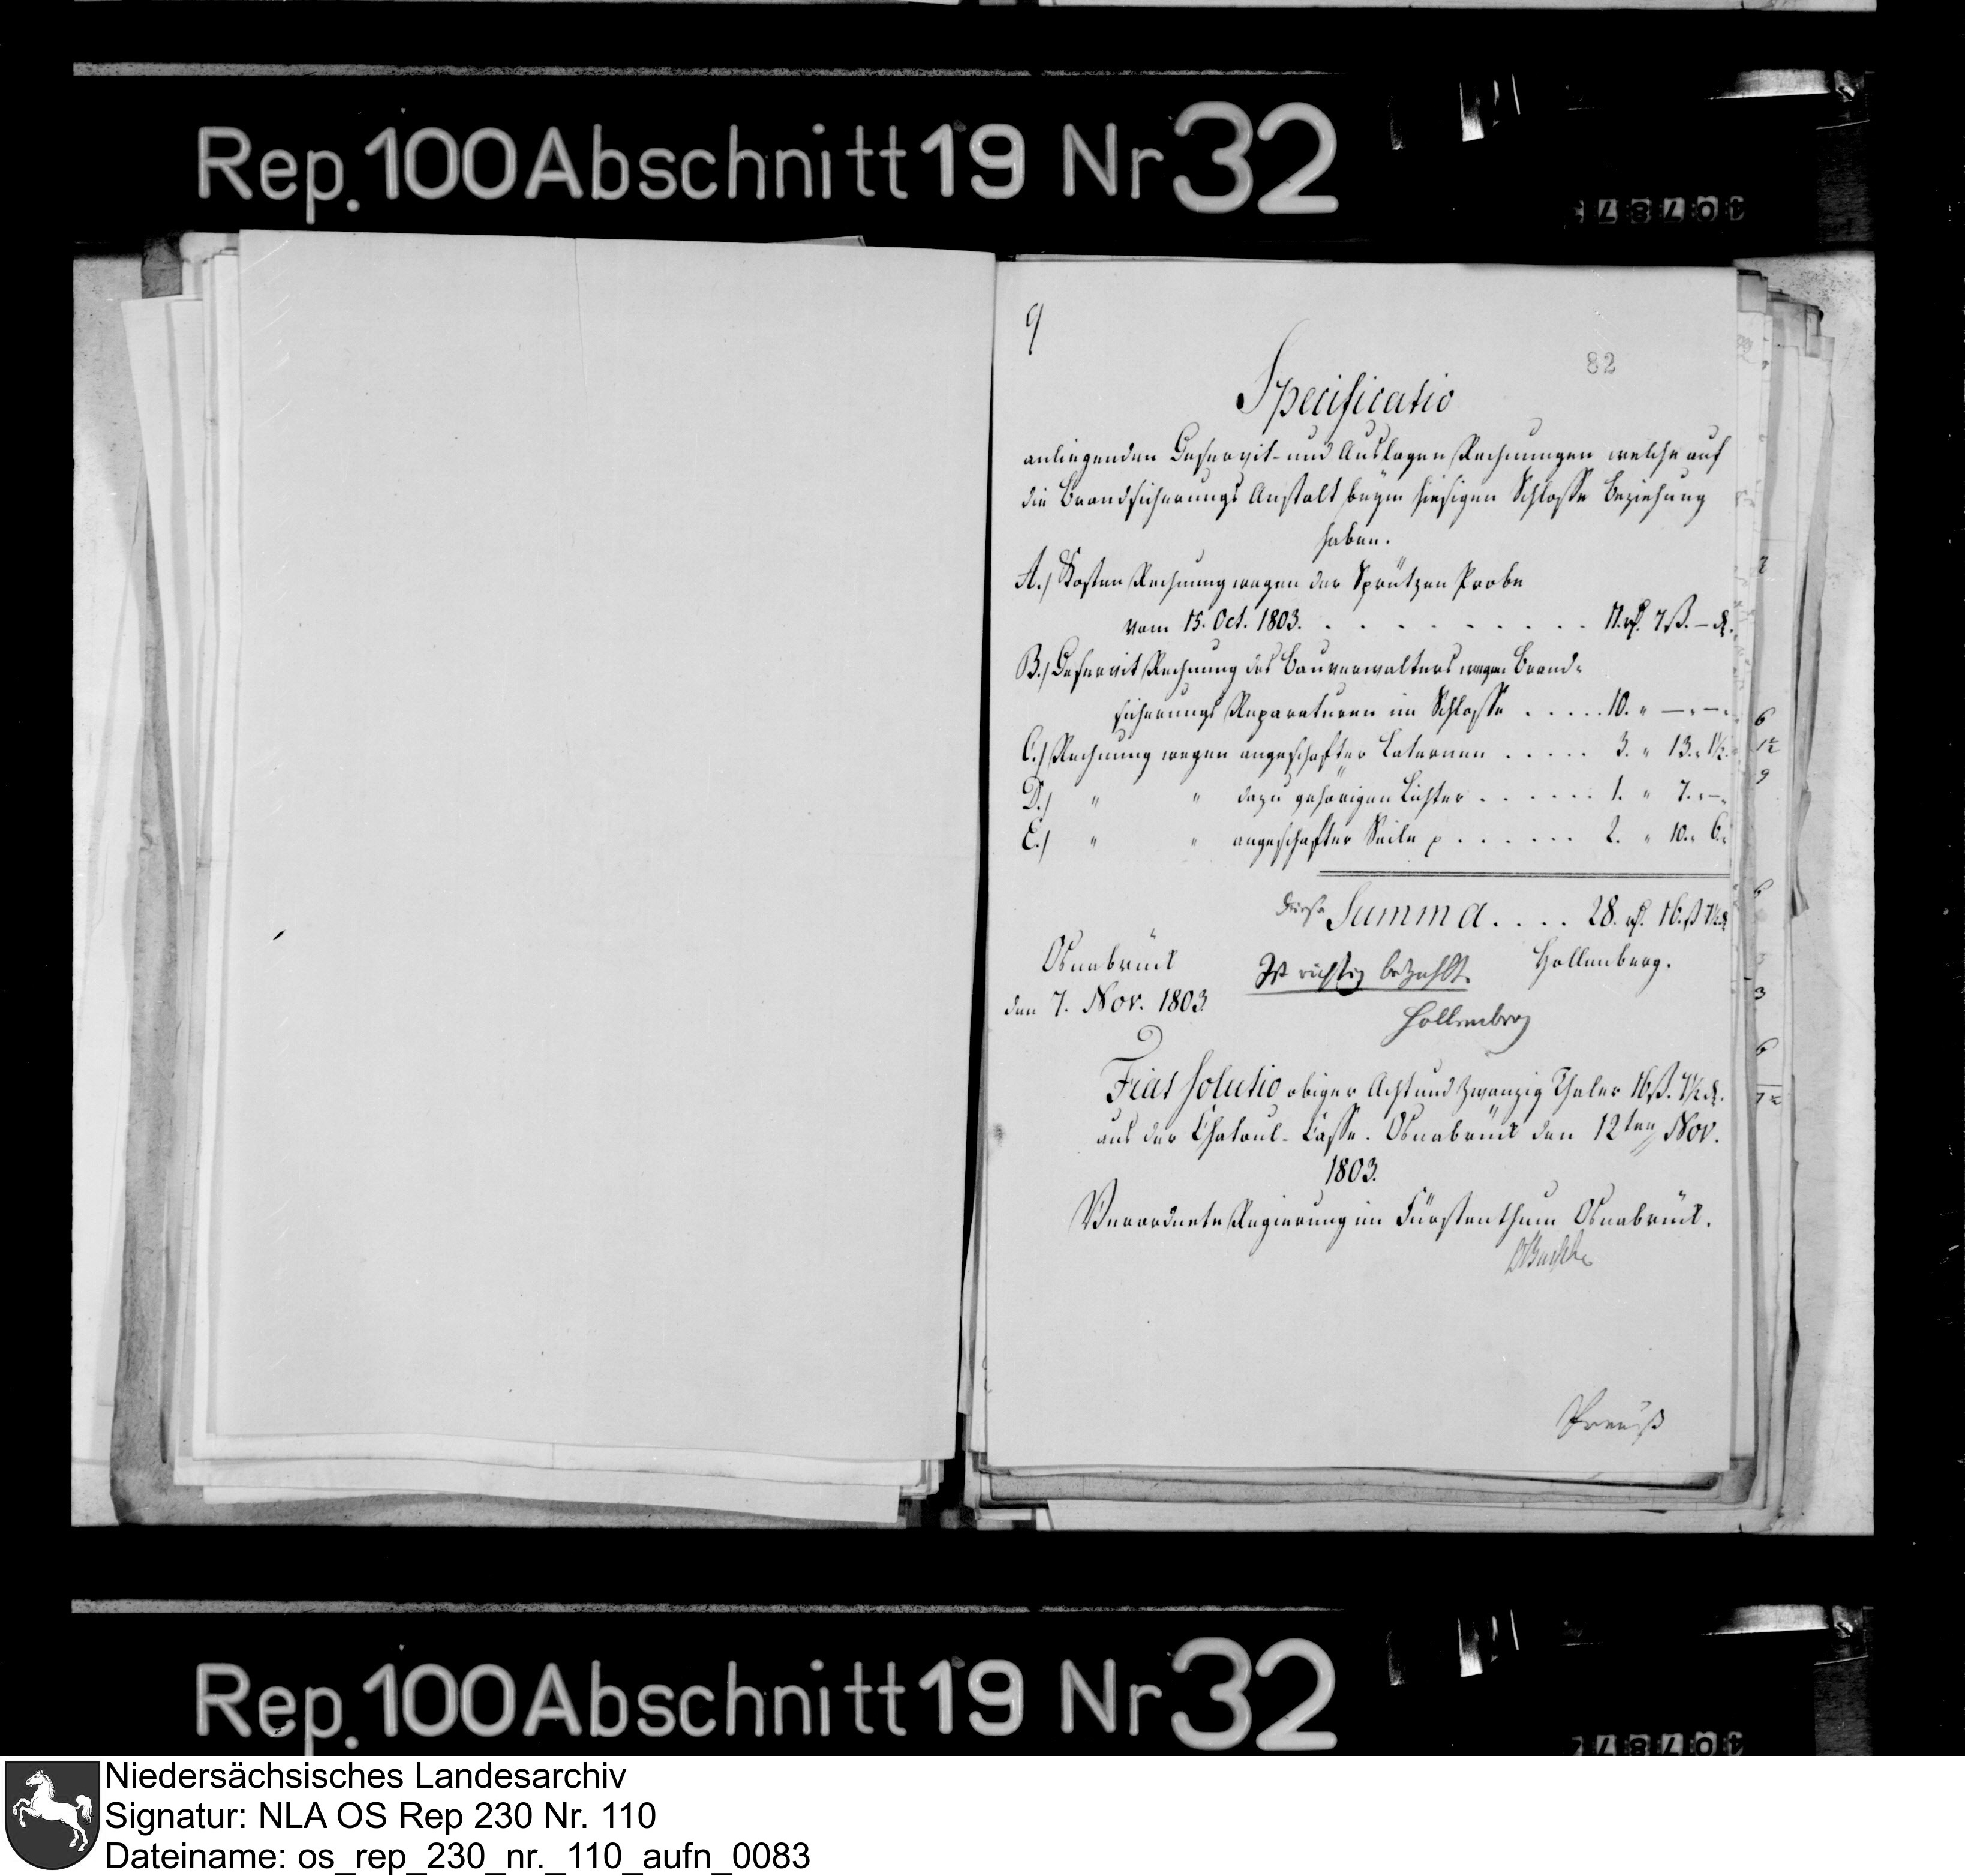 Rep. 100 Abschnitt 19 Nr 32
9
82
Specificatio
anliegenden Deservit- und Auslagen Rechnungen welche auf
die Brandsicherungs Anstalt beym hiesigen Schlosse Beziehung
haben.
A.) Kosten Rechnung wegen der Sprützen Probe
vom 15. Oct. 1803. . . . . . . . . . 11. rß. 7 ß. — d.
B.) Deservit Rechnung des Bauverwalters wegen Brand-
sicherungs Reparaturen im Schlosse . . . . . 10. " — " —
C.) Rechnung wegen angeschafter Laternen . . . . . 3. " 13. " 1½.
D.) " " dazu gehörigen Lichter . . . . . . 1. " 7. " —
E.) " " angeschafter Seile p . . . . . . 2. " 10. " 6. "
Summa . . . . 28. rß. 16. ß 7½ d
Osnabrück
den 7. Nov. 1803
Ist richtig bezahlt.
Hollenberg.
Hollenberg
Fiat solutio obiger Acht und zwanzig Thaler 16 ß. 7½ d.
aus der Chatoul-Casse. Osnabrück den 12ten Nov.
1803.
Verordnete Regierung im Fürstenthum Osnabrück.
Preuß
Rep. 100 Abschnitt 19 Nr 32
Niedersächsisches Landesarchiv
Signatur: NLA OS Rep 230 Nr. 110
Dateiname: os_rep_230_nr._110_aufn_0083